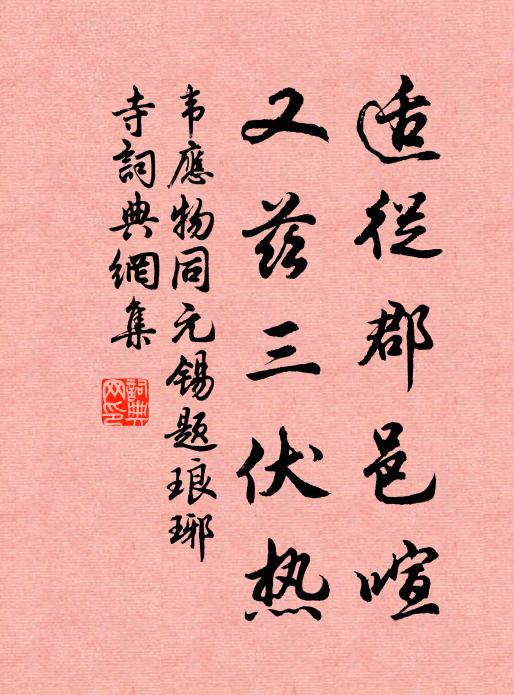 适從郡邑喧
又兹三伏热
韦應物同元锡题琅琊
寺詞典網集
詞典网印